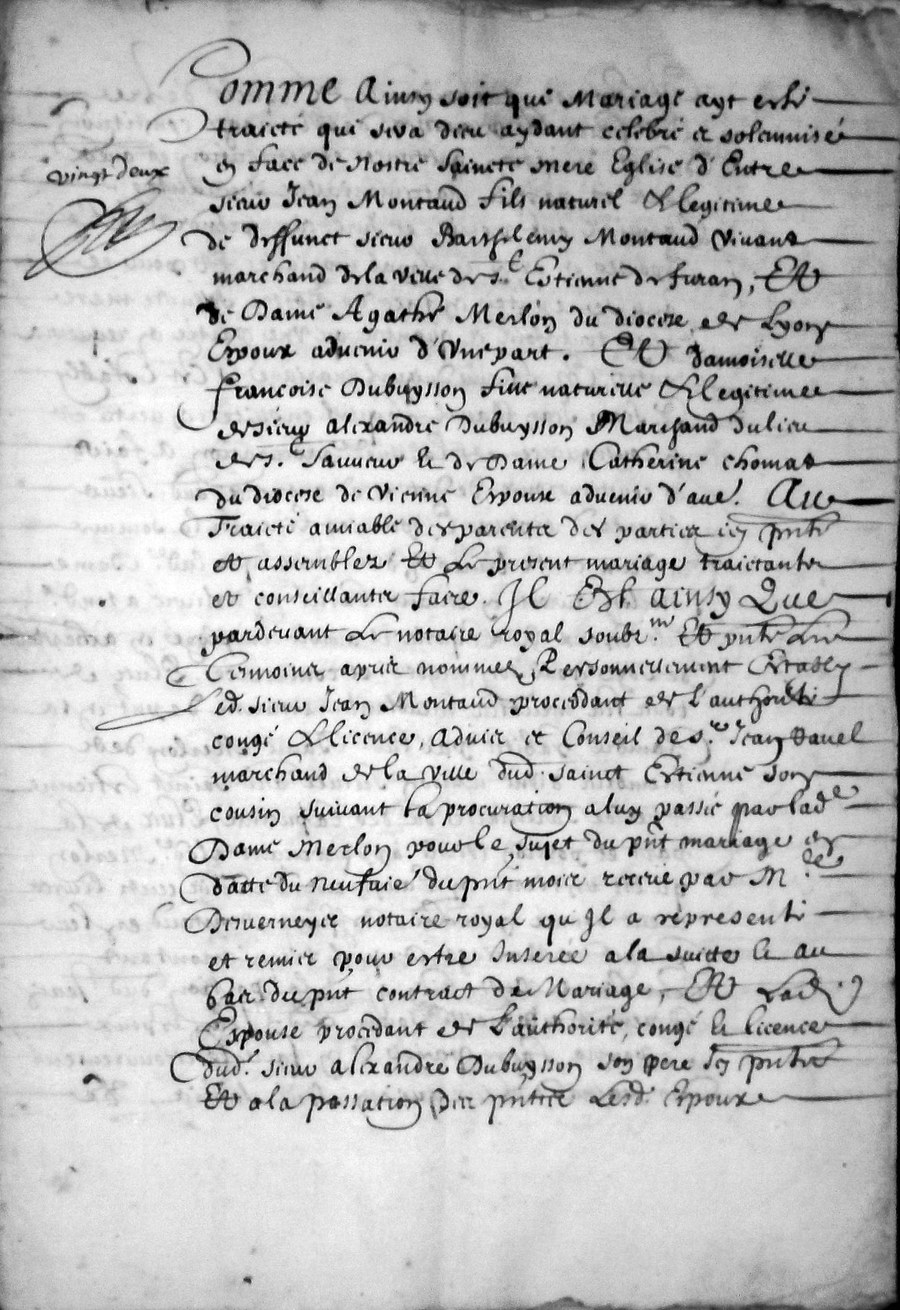 Comme Ainsy soit que Mariage ayt esté
traicté qui sera dieu aydant celebré et solemnisé
en face de Nostre Saincte mere Eglise d'Entre
vingt deux
sieur Jean Montaud fils naturel & legitime
de deffunct sieur Barthelemy Montaud vivant
marchand de la ville de St Estienne de furan, Et
de Dame Agathe Merlon du diocese de Lyon
Espoux advenir d'Une part. Et damoiselle
françoise Dubuysson fille naturelle & legitime
de sieur alexandre Dubuysson Marchand du lieu
de St. Sauveur & de Dame Catherine chomat
du diocese de vienne Espouse advenir d'aue. Au
Traicté amiable des parents des parties icy pnts
et assembles Et Le present mariage traictants
et conseillants faire. Il Est ainsy Que
pardevant Le notaire royal soubs.né Et pnts Les
tesmoins apres nommes, Personnellement Estably
led. sieur Jean Montaud procedant de l'authorité
congé & licence, advis et Conseil de sr. Jean
marchand de la ville dud. sainct Estienne son
cousin suivant la procuration a luy passée par lade
Dame Merlon pour le sujet du pnt mariage en
datte du neufvie. du pnt mois receue par Me
notaire royal qu'Il a representé
et remise pour estre Inserée a la suitte & au
bas du pnt contract de Mariage, Et Lad.
Espouse procedant de L'authorité, congé & licence
dud. sieur alexandre Dubuysson son pere Icy pnt
Et a la passation des pntes Lesd. Espoux